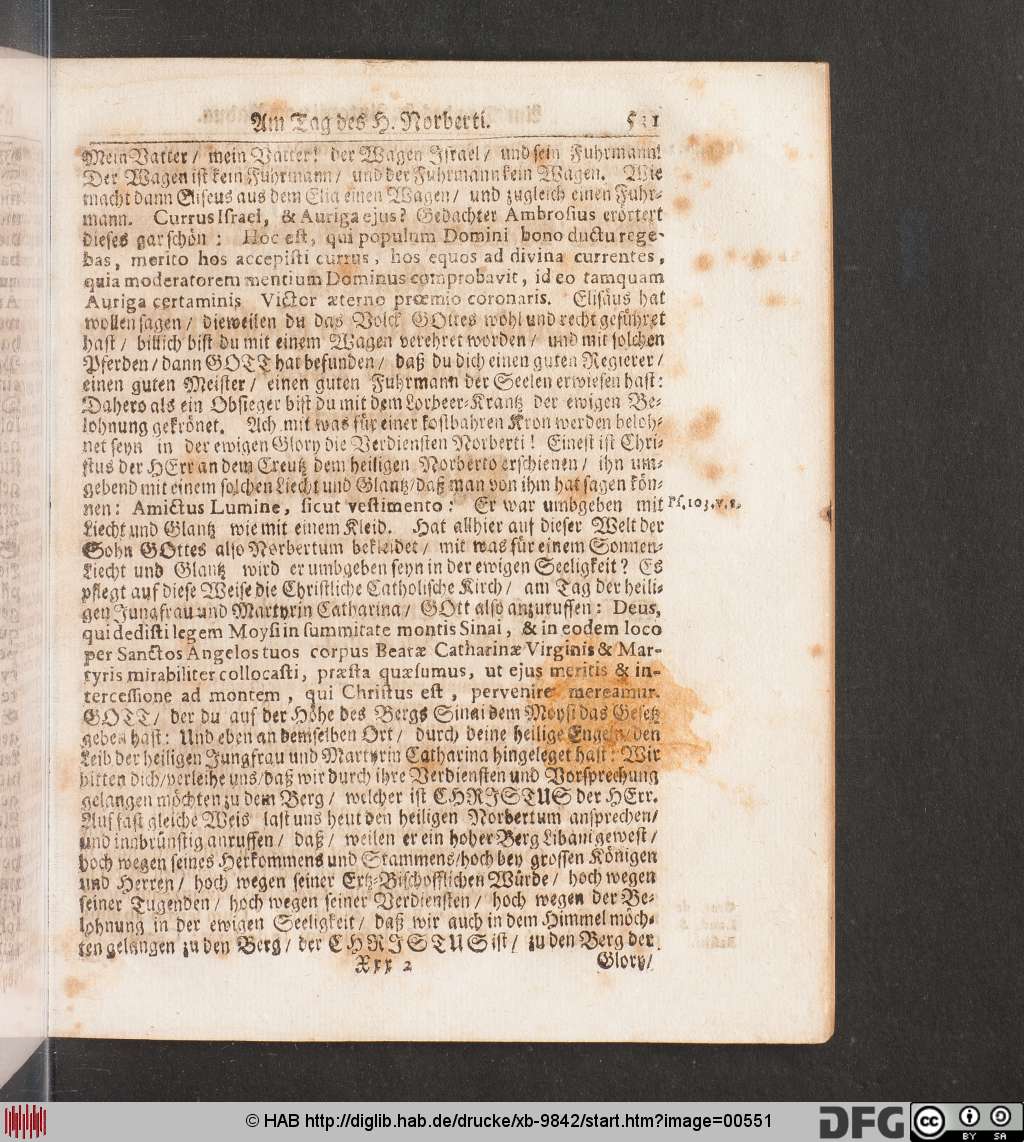 Am Tag des H. Norberti. 531
Mein Vatter/ mein Vatter! der Wagen Israel/ und sein Fuhrmann!
Der Wagen ist kein Fuhrmann/ und der Fuhrmann kein Wagen. Wie
macht dann Eliseus aus dem Elia einen Wagen/ und zugleich einen Fuhr-
mann. Currus Israel, & Auriga ejus? Gedachter Ambrosius erörtert
dieses gar schön: Hoc est, qui populum Domini bono ductu rege-
bas, merito hos accepisti currus, hos equos ad divina currentes,
quia moderatorem mentium Dominus comprobavit, ideo tamquam
Auriga certaminis Victor æterno prœmio coronaris. Elisäus hat
wollen sagen/ dieweilen du das Volck GOttes wohl und recht geführet
hast/ billich bist du mit einem Wagen verehret worden/ und mit solchen
Pferden/ dann GOTT hat befunden/ daß du dich einen guten Regierer/
einen guten Meister/ einen guten Fuhrmann der Seelen erwiesen hast:
Dahero als ein Obsieger bist du mit dem Lorbeer-Krantz der ewigen Be-
lohnung gekrönet. Ach mit was für einer kostbahren Kron werden beloh-
net seyn in der ewigen Glory die Verdiensten Norberti! Einest ist Chri-
stus der HErr an dem Creutz dem heiligen Norberto erschienen/ ihn um-
gebend mit einem solchen Liecht und Glantz/ daß man von ihm hat sagen kön-
nen: Amictus Lumine, sicut vestimento: Er war umbgeben mit Ps. 103. v. 2.
Liecht und Glantz wie mit einem Kleid. Hat allhier auf dieser Welt der
Sohn GOttes also Norbertum bekleidet/ mit was für einem Sonnen-
Liecht und Glantz wird er umbgeben seyn in der ewigen Seeligkeit? Es
pflegt auf diese Weise die Christliche Catholische Kirch/ am Tag der heili-
gen Jungfrau und Martyrin Catharina/ GOtt also anzuruffen: Deus,
qui dedisti legem Moysi in summitate montis Sinai, & in eodem loco
per Sanctos Angelos tuos corpus Beatæ Catharinæ Virginis & Mar-
tyris mirabiliter collocasti, præsta quæsumus, ut ejus meritis & in-
tercessione ad montem, qui Christus est, pervenire mereamur.
GOTT/ der du auf der Höhe des Bergs Sinai dem Moysi das Gesetz
geben hast: Und eben an demselben Ort/ durch deine heilige Engeln/ den
Leib der heiligen Jungfrau und Martyrin Catharina hingeleget hast: Wir
bitten dich/ verleihe uns/ daß wir durch ihre Verdiensten und Vorsprechung
gelangen möchten zu dem Berg/ welcher ist CHRISTUS der HErr.
Auf fast gleiche Weis last uns heut den heiligen Norbertum ansprechen/
und innbrünstig anruffen/ daß/ weilen er ein hoher Berg Libani gewest/
hoch wegen seines Herkommens und Stammens/ hoch bey grossen Königen
und Herren/ hoch wegen seiner Ertz-Bischofflichen Würde/ hoch wegen
seiner Tugenden/ hoch wegen seiner Verdiensten/ hoch wegen der Be-
lohnung in der ewigen Seeligkeit/ daß wir auch in dem Himmel möch-
ten gelangen zu den Berg/ der CHRISTUS ist/ zu den Berg der
Xxx 2 Glory/
© HAB http://diglib.hab.de/drucke/xb-9842/start.htm?image=00551
DFG
cc BY SA